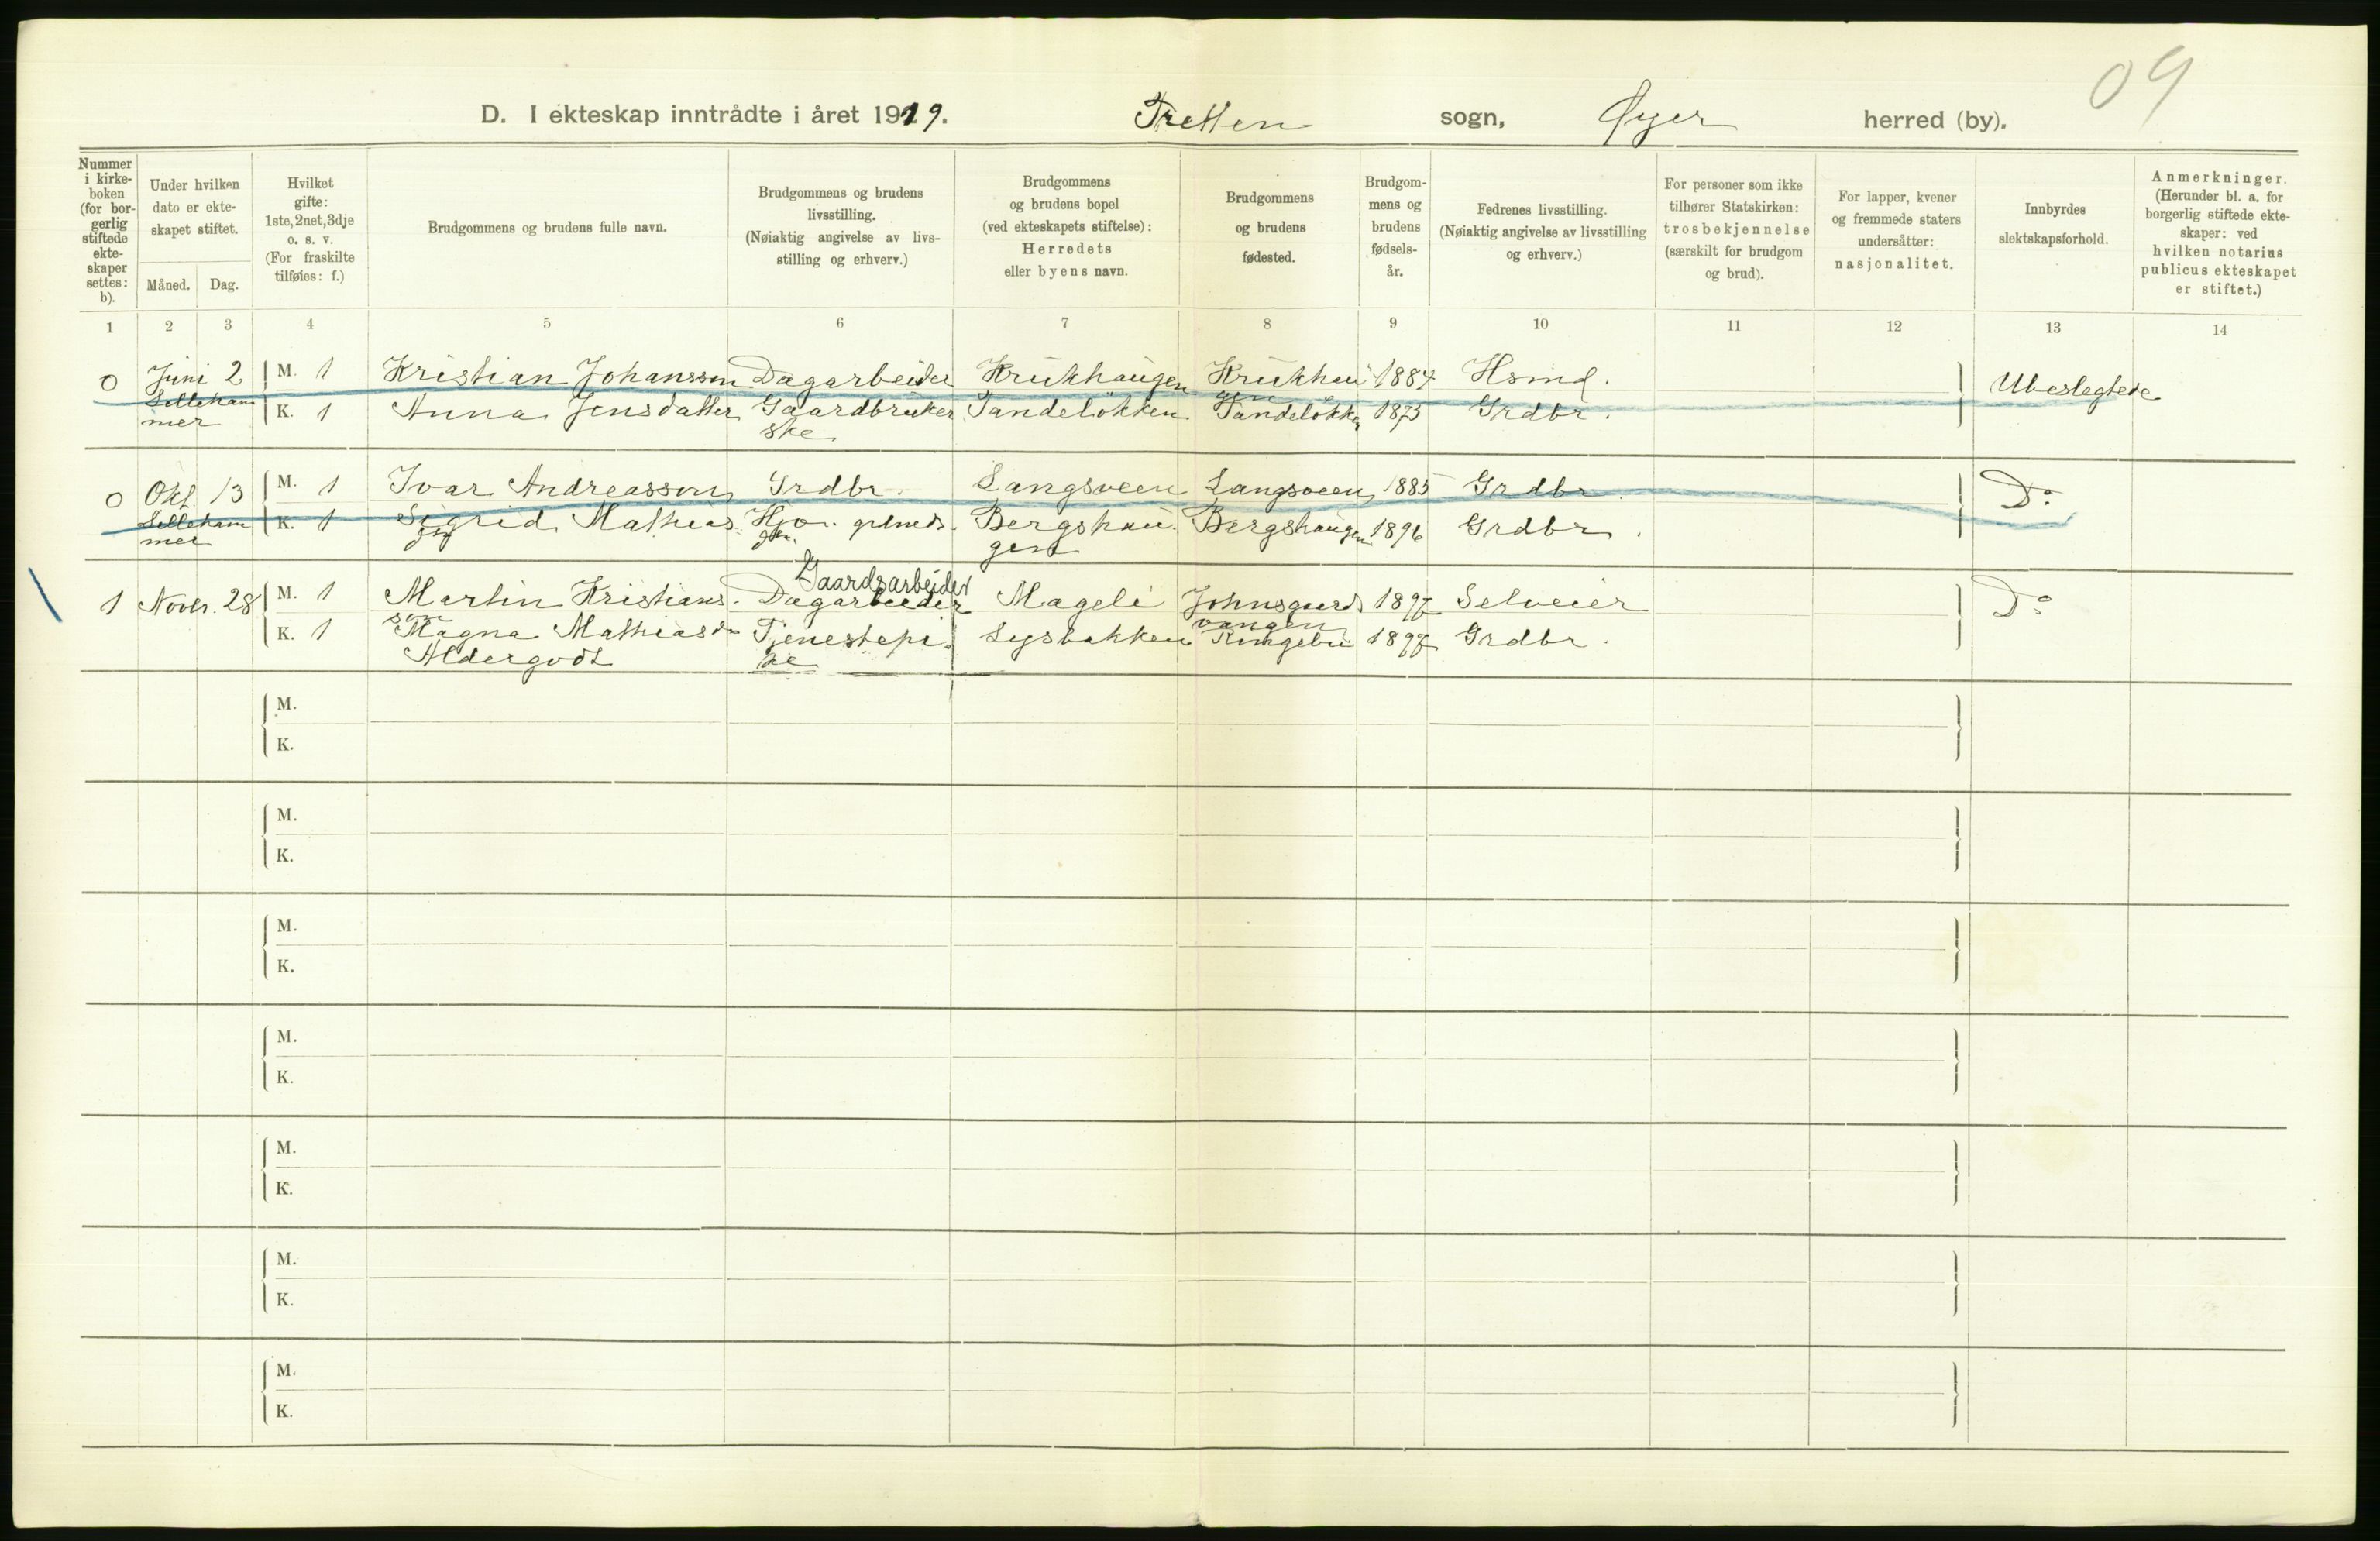 09
D. I ekteskap inntrådte i året 1919. Tretten sogn, Øyer herred (by).
Nummer i kirke-boken (for bor-gerlig stiftede ekte-skaper settes: b).
Under hvilken dato er ekte-skapet stiftet.
Måned. Dag.
Hvilket gifte: 1ste, 2net, 3dje o. s. v. (For fraskilte tilføies: f.)
Brudgommens og brudens fulle navn.
Brudgommens og brudens livsstilling. (Nøiaktig angivelse av livs-stilling og erhverv.)
Brudgommens og brudens bopel (ved ekteskapets stiftelse): Herredets eller byens navn.
Brudgommens og brudens fødested.
Brudgom-mens og brudens fødsels-år.
Fedrenes livsstilling. (Nøiaktig angivelse av livsstilling og erhverv.)
For personer som ikke tilhører Statskirken: trosbekjennelse (særskilt for brudgom og brud).
For lapper, kvener og fremmede staters undersåtter: nasjonalitet.
Innbyrdes slektskapsforhold.
Anmerkninger. (Herunder bl. a. for borgerlig stiftede ekte-skaper: ved hvilken notarius publicus ekteskapet er stiftet.)
1 2 3 4 5 6 7 8 9 10 11 12 13 14
0 Juni 2 M. 1 Kristian Johanssen Dagarbeider Krukhaugen Krukhau 1884 Hsmd. Ubeslegtede
Lilleham K. 1 Anna Jensdatter Gaardbruker Tandeløkken gen Tandeløkke 1875 Grdbr.
mer ske
0 Okt. 13 M. 1 Ivar Andreasson Grdbr. Langsveen Langsveen 1885 Grdbr. Do
Lilleham K. 1 Sigrid Mathias Hjv. Bergshau Bergshaugen 1896 Grdbr.
mer gen
Gaardsarbeider
1 Novbr. 28 M. 1 Martin Kristians Dagarbeider Mageli Johnsgards 1897 Selveier Do
sen vangen
K. 1 Magna Mathiasd Tjenestepi Lysbakken Ringebu 1897 Grdbr.
Aldergodt ke
M.
K.
M.
K.
M.
K.
M.
K.
M.
K.
M.
K.
M.
K.